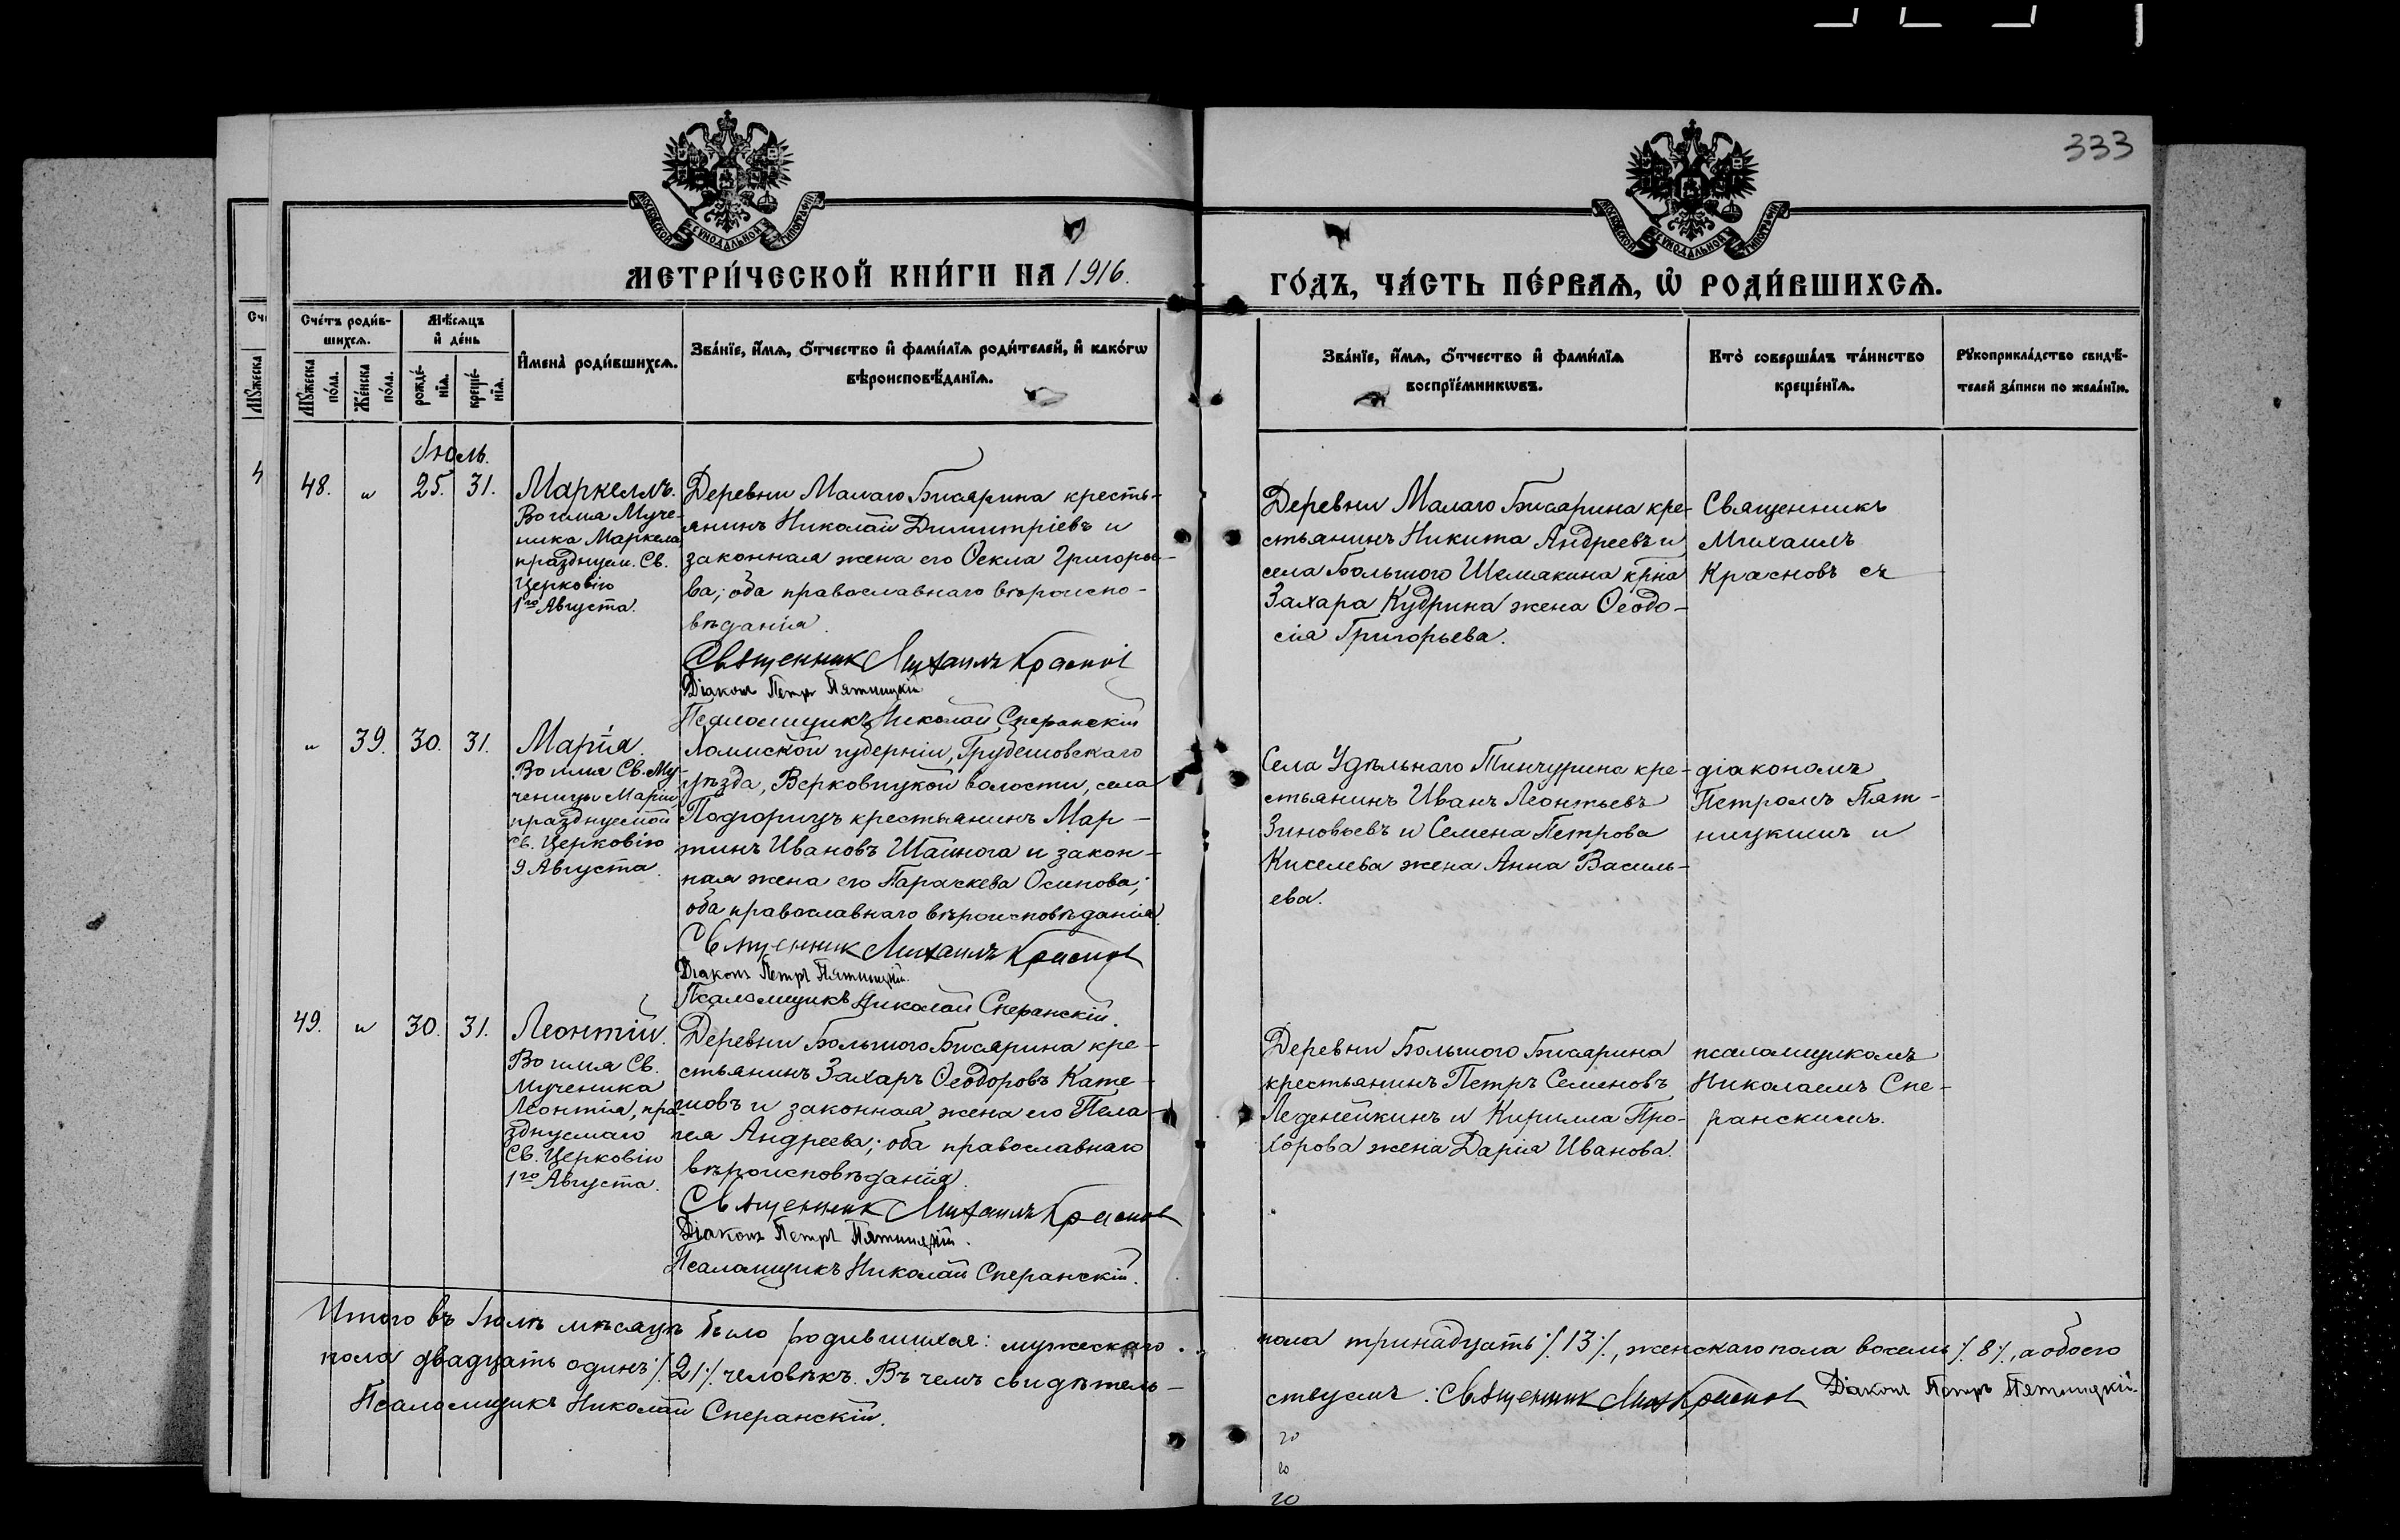 333
МОСКОВСКОЙ СѴНОДАЛЬНОЙ ТИПОГРАФІИ
МОСКОВСКОЙ СѴНОДАЛЬНОЙ ТИПОГРАФІИ
МЕТРИ́ЧЕСКОЙ КНИ́ГИ НА 1916.
ГО́ДЪ, ЧА́СТЬ ПЕ́РВАѦ, Ѡ҆ РОДИ́ВШИХСѦ.
Сче́тъ роди́в-
шихсѧ.
Мѣ́сѧцъ
и҆ де́нь
Мꙋ́жеска
по́ла.
Же́нска
по́ла.
рожде́-
нїѧ.
креще́-
нїѧ.
И҆мена̀ роди́вшихсѧ.
Зва́нїе, и҆́мѧ, ѻ҆́тчество и҆ фами́лїѧ роди́телей, и҆ како́гѡ
вѣроисповѣ́данїѧ.
Зва́нїе, и҆́мѧ, ѻ҆́тчество и҆ фами́лїѧ
воспрїе́мникѡвъ.
Кто̀ соверша́лъ та́инство
креще́нїѧ.
Рꙋкоприкла́дство свидѣ́-
телей за́писи по жела́нїю.
Іюль.
48. " 25. 31.
Маркеллъ.
Во имя Муче-
ника Маркела
празднуем. Св.
Церковію
1го Августа.
Деревни Малаго Бисярина кресть-
янинъ Николай Димитріевъ и
законная жена его Ѳекла Григорье-
ва; оба православнаго вѣроиспо-
вѣданія.
Священник Михаилъ Краснов
Діаконъ Петръ Пятницкій
Псаломщикъ Николай Сперанскій
Деревни Малаго Бисярина кре-
стьянинъ Никита Андреевъ и
села Большого Шемякина кр-на
Захара Кудрина жена Ѳеодо-
сія Григорьева.
Священникъ
Михаилъ
Красновъ съ
" 39. 30. 31.
Марія.
Во имя Св. Му-
ченицы Маріи
празднуемой
Св. Церковію
9 Августа.
Грубешовскаго
уѣзда, Верковицкой волости, села
Подгорицъ крестьянинъ Мар-
тинъ Ивановъ Шайнога и закон-
ная жена его Параскева Осипова;
оба православнаго вѣроисповѣданія.
Священник Михаилъ Краснов
Діаконъ Петръ Пятницкій.
Псаломщикъ Николай Сперанскій.
Села Удѣльнаго Тинчурина кре-
стьянинъ Иванъ Леонтьевъ
Зиновьевъ и Семена Петрова
Киселева жена Анна Василь-
ева.
діакономъ
Петромъ Пят-
ницкимъ и
49. " 30. 31.
Леонтій.
Во имя Св.
Мученика
Леонтія, пра-
зднуемаго
Св. Церковію
1го Августа.
Деревни Большого Бисярина кре-
стьянинъ Захаръ Ѳеодоровъ Кате-
шовъ и законная жена его Пела-
гея Андреева; оба православнаго
вѣроисповѣданія.
Священник Михаилъ Краснов
Діаконъ Петръ Пятницкій.
Псаломщикъ Николай Сперанскій.
Деревни Большого Бисярина
крестьянинъ Петръ Семеновъ
Леденейкинъ и Кирилла Про-
хорова жена Дарія Иванова.
псаломщикомъ
Николаемъ Спе-
ранскимъ.
Итого въ Іюлѣ мѣсяцѣ было родившихся: мужескаго
пола тринадцать ⁒ 13 ⁒, женскаго пола восемь ⁒ 8 ⁒, а обоего
пола двадцать одинъ ⁒ 21 ⁒ человѣкъ. Въ чемъ свидѣтель-
ствуемъ: Священник Мих Краснов Діаконъ Петръ Пятницкій.
Псаломщикъ Николай Сперанскій.